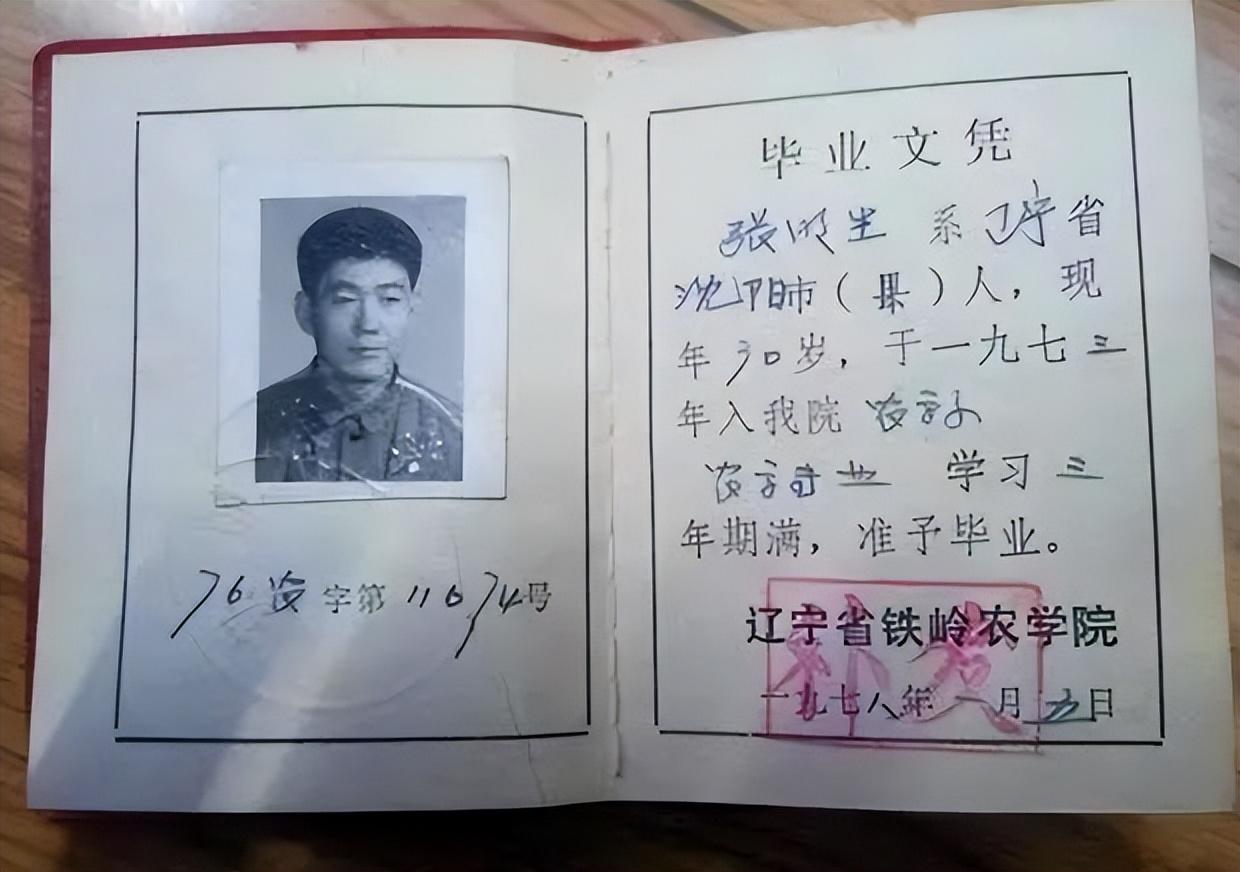 76农字第11674号
毕业文凭
张明生 系辽宁省
沈阳市（县）人，现
年30岁，于一九七三
年入我院农学系
农学专业 学习三
年期满，准予毕业。
辽宁省铁岭农学院
一九七八年一月五日
补发